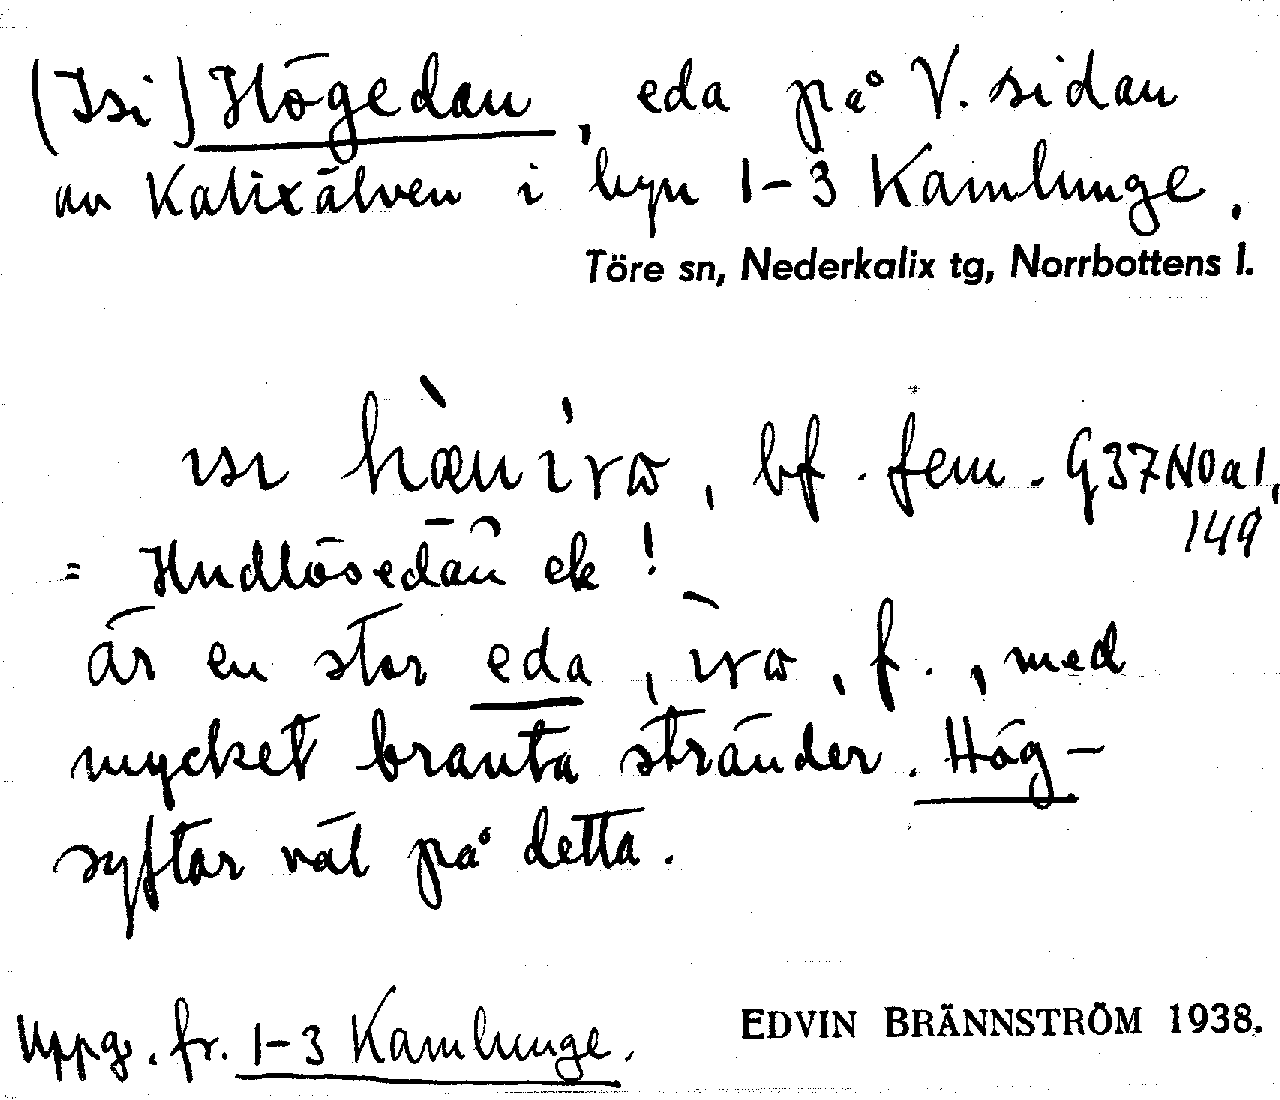 (Isi) Högedan, eda på V. sidan
av Kalixälven i byn 1-3 Kamlunge.
Töre sn, Nederkalix tg, Norrbottens l.
bf. fem. G37N0a1,
149
= Hudlösedan ek!
är en stor eda, f., med
mycket branta stränder. Hög-
syftar väl på detta.
Uppg. fr. 1-3 Kamlunge.
EDVIN BRÄNNSTRÖM 1938.